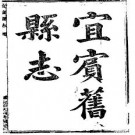 宜賓舊
縣志